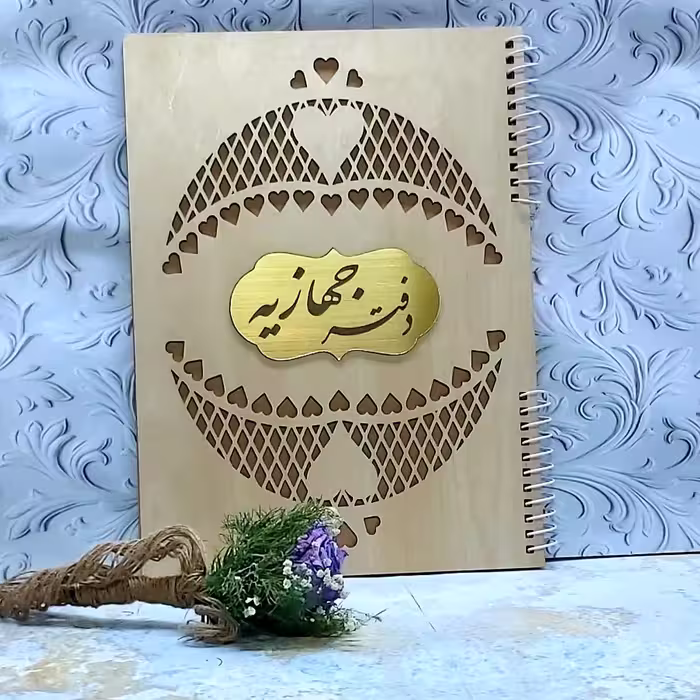 دفتر جهازیه